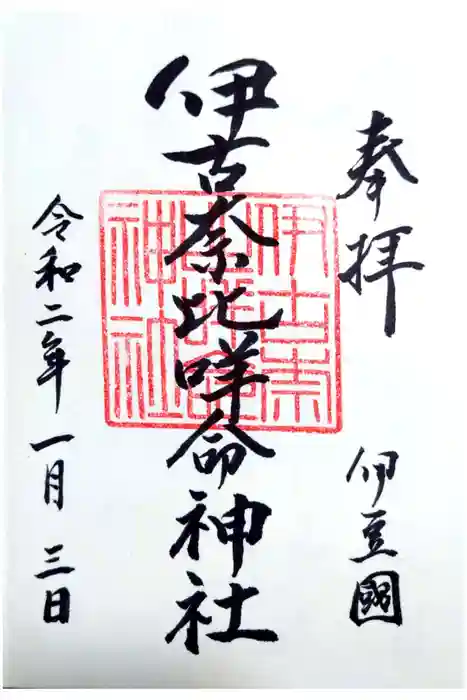 奉拝
伊豆國
伊古奈比咩命神社
伊古奈
比咩命
神社
令和二年一月三日